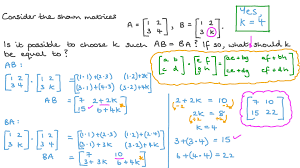 Consider the shown matrices A = [1 2 3 4], B = [1 2 3 k]
Yes,
k = 4
Is it possible to choose k such
AB = BA? If so, what should k
be equal to?
[a b c d] · [e f g h] = [ae+bg af+bh ce+dg cf+dh]
AB:
[1 2 3 4] · [1 2 3 k] = [(1·1)+(2·3) (1·2)+(2·k) (3·1)+(4·3) (3·2)+(4·k)]
AB = [7 2+2k 15 6+4k]
BA:
[1 2 3 k] · [1 2 3 4] = [(1·1)+(2·3) (1·2)+(2·4) (3·1)+(k·3) (3·2)+(k·4)]
BA = [7 10 3+3k 6+4k]
2+2k = 10
-2 -2
2k = 8
÷2 ÷2
k = 4
[7 10 15 22]
3+(3·4) = 15 ✓
6+(4·4) = 22